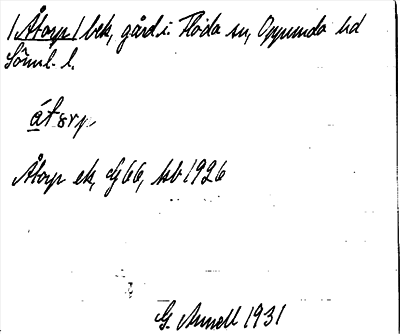 /Åtorp/ bek, gård i Floda sn, Oppunda hd
Söml. l.
åtorp
Åtorp ek, Gg 66, kbt 1926
G. Annell 1931